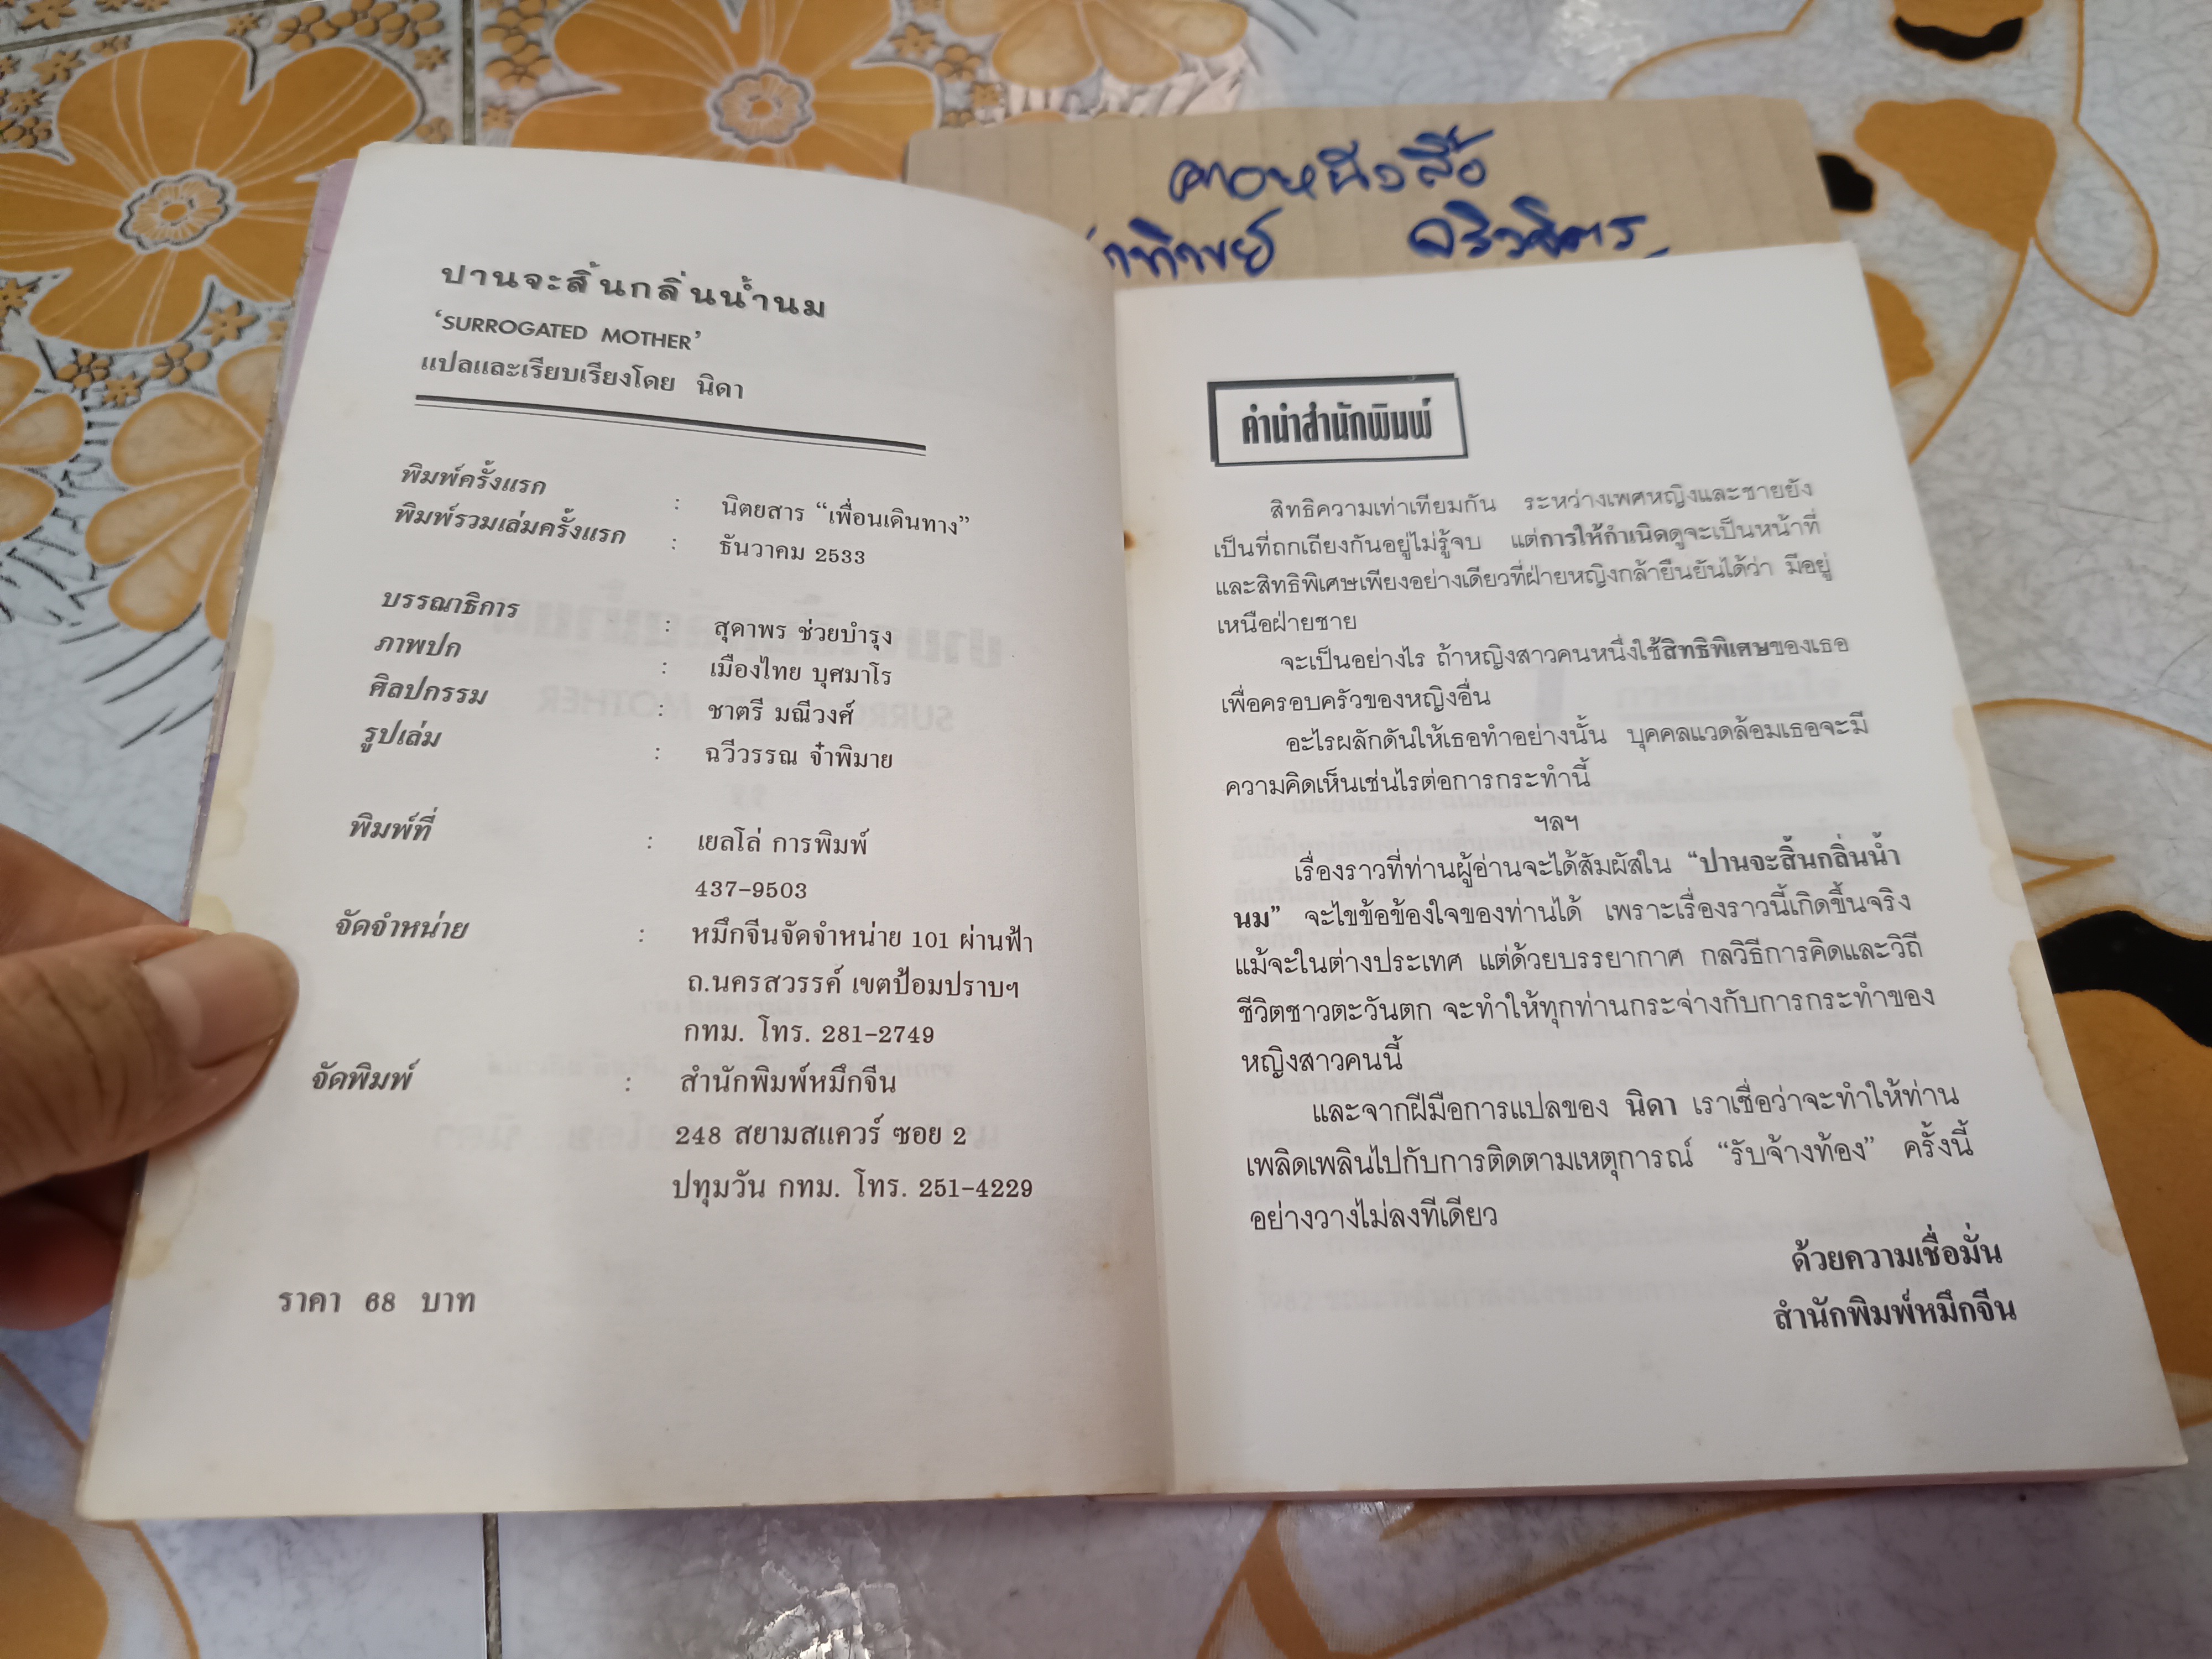 คาดหนังสือ
ปานจะสิ้นกลิ่นน้ำนม
‘SURROGATED MOTHER’
แปลและเรียบเรียงโดย นิดา
พิมพ์ครั้งแรก : นิตยสาร “เพื่อนเดินทาง”
พิมพ์รวมเล่มครั้งแรก : ธันวาคม 2533
บรรณาธิการ : สุดาพร ช่วยบำรุง
ภาพปก : เมืองไทย บุศมาโร
ศิลปกรรม : ชาตรี มณีวงศ์
รูปเล่ม : ฉวีวรรณ จ๋าพิมาย
พิมพ์ที่ : เยลโล่ การพิมพ์
437-9503
จัดจำหน่าย : หมึกจีนจัดจำหน่าย 101 ผ่านฟ้า
ถ.นครสวรรค์ เขตป้อมปราบฯ
กทม. โทร. 281-2749
จัดพิมพ์ : สำนักพิมพ์หมึกจีน
248 สยามสแควร์ ซอย 2
ปทุมวัน กทม. โทร. 251-4229
ราคา 68 บาท
คำนำสำนักพิมพ์
สิทธิความเท่าเทียมกัน ระหว่างเพศหญิงและชายยัง
เป็นที่ถกเถียงกันอยู่ไม่รู้จบ แต่การให้กำเนิดดูจะเป็นหน้าที่
และสิทธิพิเศษเพียงอย่างเดียวที่ฝ่ายหญิงกล้ายืนยันได้ว่า มีอยู่
เหนือฝ่ายชาย
จะเป็นอย่างไร ถ้าหญิงสาวคนหนึ่งใช้สิทธิพิเศษของเธอ
เพื่อครอบครัวของหญิงอื่น
อะไรผลักดันให้เธอทำอย่างนั้น บุคคลแวดล้อมเธอจะมี
ความคิดเห็นเช่นไรต่อการกระทำนี้
ฯลฯ
เรื่องราวที่ท่านผู้อ่านจะได้สัมผัสใน “ปานจะสิ้นกลิ่นน้ำ
นม” จะไขข้อข้องใจของท่านได้ เพราะเรื่องราวนี้เกิดขึ้นจริง
แม้จะในต่างประเทศ แต่ด้วยบรรยากาศ กลวิธีการคิดและวิถี
ชีวิตชาวตะวันตก จะทำให้ทุกท่านกระจ่างกับการกระทำของ
หญิงสาวคนนี้
และจากฝีมือการแปลของ นิดา เราเชื่อว่าจะทำให้ท่าน
เพลิดเพลินไปกับการติดตามเหตุการณ์ “รับจ้างท้อง” ครั้งนี้
อย่างวางไม่ลงทีเดียว
ด้วยความเชื่อมั่น
สำนักพิมพ์หมึกจีน